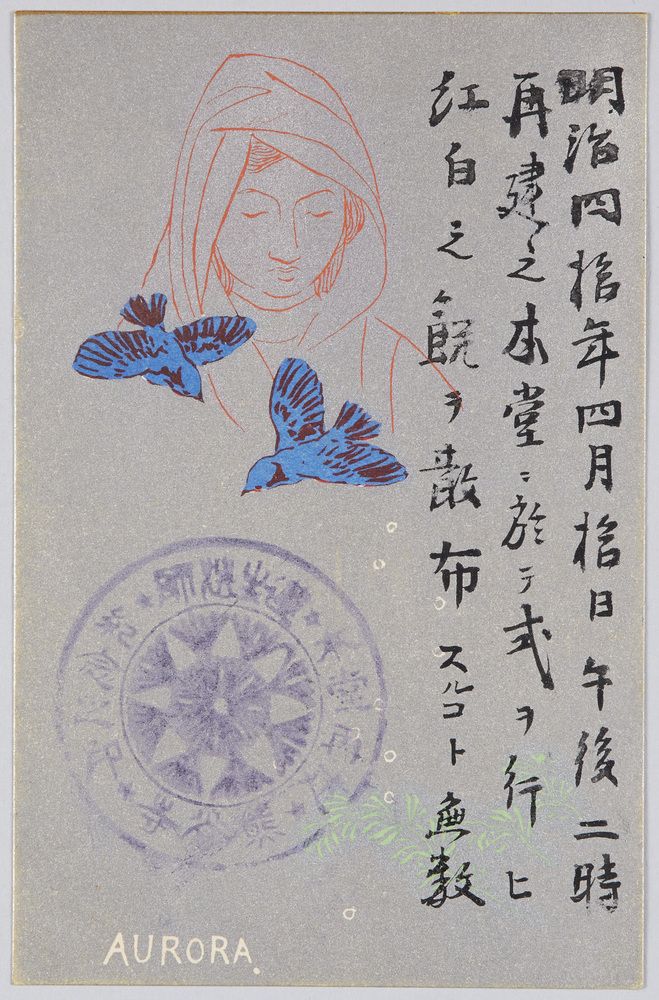 明治四拾年四月拾日午後二時
再建之本堂ニ於テ式ヲ行ヒ
紅白之餅ヲ散布スルコト無数
AURORA.